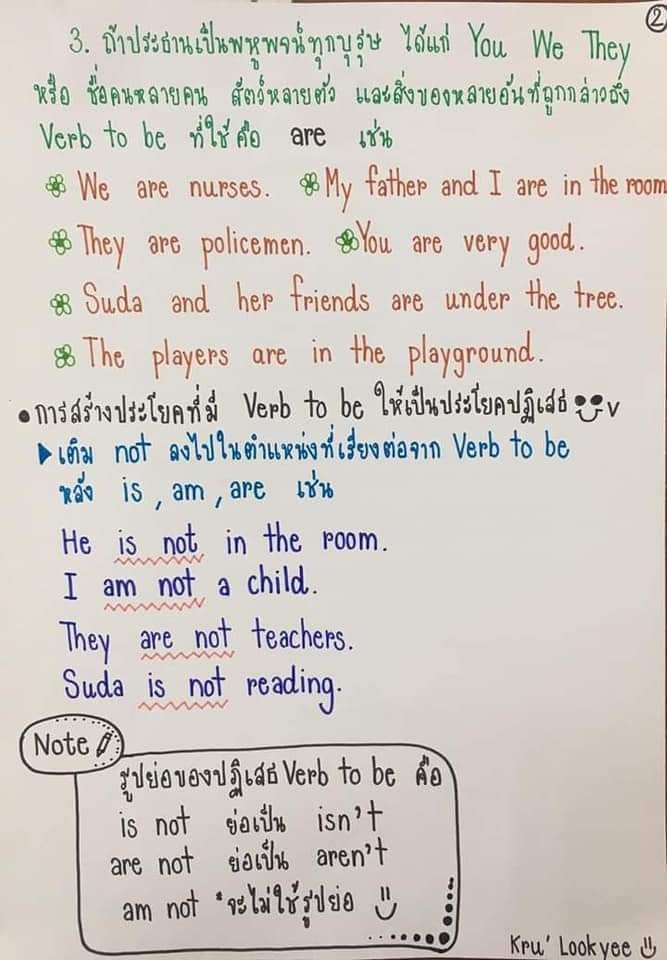 2
3. ถ้าประธานเป็นพหูพจน์ทุกบุรุษ ได้แก่ You We They
หรือ ชื่อคนหลายคน สัตว์หลายตัว และสิ่งของหลายอันที่ถูกกล่าวถึง
Verb to be ที่ใช้คือ are เช่น
We are nurses. My father and I are in the room
They are policemen. You are very good.
Suda and her friends are under the tree.
The players are in the playground.
• การสร้างประโยคที่มี Verb to be ให้เป็นประโยคปฏิเสธ
เติม not ลงไปในตำแหน่งที่เรียงต่อจาก Verb to be
หลัง is , am , are เช่น
He is not in the room.
I am not a child.
They are not teachers.
Suda is not reading.
Note
รูปย่อของปฏิเสธ Verb to be คือ
is not ย่อเป็น isn't
are not ย่อเป็น aren't
am not *จะไม่ใช้รูปย่อ
Kru' Lookyee